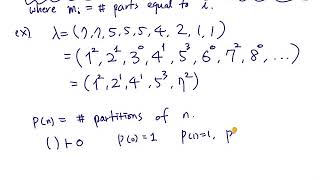 where mᵢ = # parts equal to i.
ex) λ = (7, 7, 5, 5, 5, 4, 2, 1, 1)
= (1², 2¹, 3⁰, 4¹, 5³, 6⁰, 7², 8⁰, ...)
= (1², 2¹, 4¹, 5³, 7²)
p(n) = # partitions of n.
( ) ⊢ 0 p(0) = 1 p(1) = 1, p